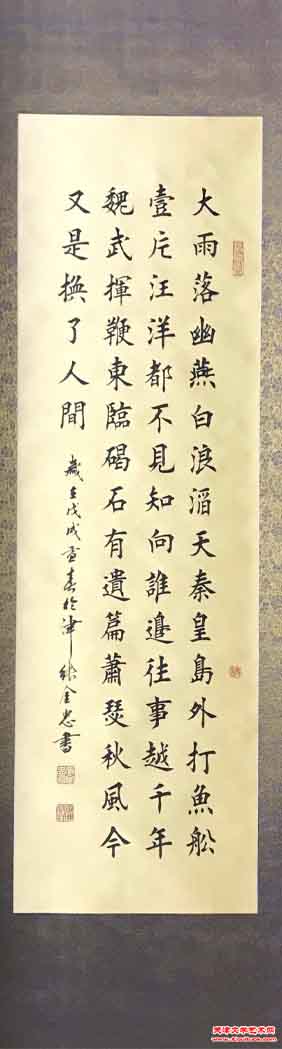 大雨落幽燕白浪滔天秦皇島外打魚船
壹片汪洋都不見知向誰邉往事越千年
魏武揮鞭東臨碣石有遺篇蕭瑟秋風今
又是換了人間
歲在戊戌孟春於津
金忠書
天津文学艺术网
www.xicuture.com